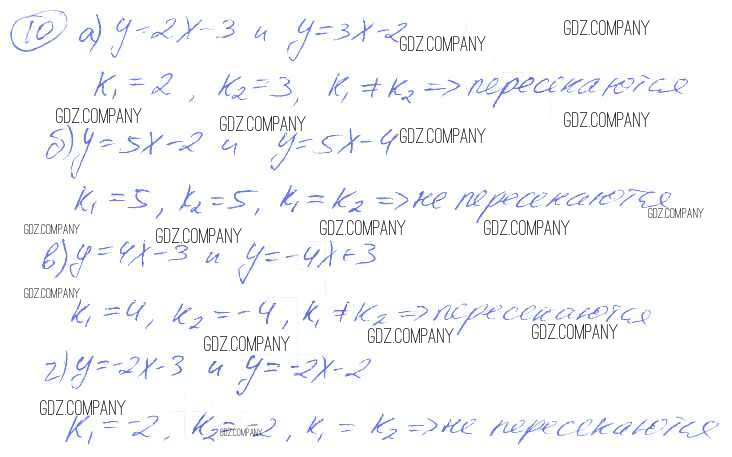 10 а) y=2x-3 и y=3x-2
GDZ.COMPANY GDZ.COMPANY
K₁=2, K₂=3, K₁≠K₂ => пересекаются
GDZ.COMPANY GDZ.COMPANY GDZ.COMPANY
б) y=5x-2 и y=5x-4
GDZ.COMPANY
K₁=5, K₂=5, K₁=K₂ => не пересекаются
GDZ.COMPANY GDZ.COMPANY GDZ.COMPANY GDZ.COMPANY GDZ.COMPANY
в) y=4x-3 и y=-4x+3
GDZ.COMPANY
K₁=4, K₂=-4, K₁≠K₂ => пересекаются
GDZ.COMPANY GDZ.COMPANY GDZ.COMPANY
г) y=-2x-3 и y=-2x-2
GDZ.COMPANY
K₁=-2, K₂=-2, K₁=K₂ => не пересекаются
GDZ.COMPANY